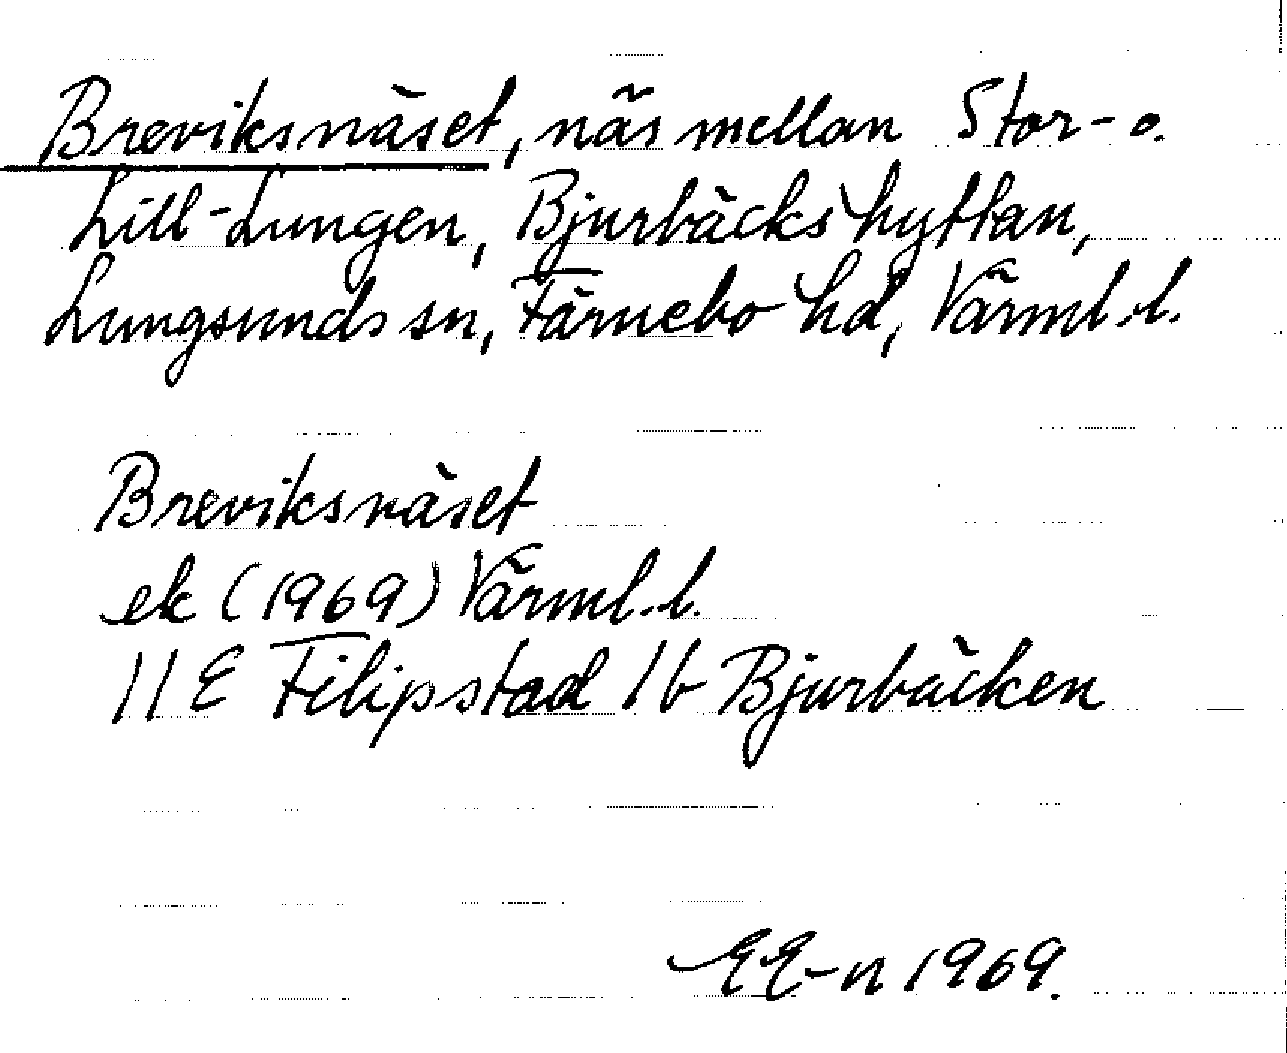 Breviksnäset, näs mellan Stor- o.
Lill-Lungen, Bjurbäckshyttan,
Lungsunds sn, Färnebo hd, Värml. l.
Breviksnäset
ek (1969) Värml. l.
11 E Filipstad 1 b Bjurbäcken
EE-n 1969.